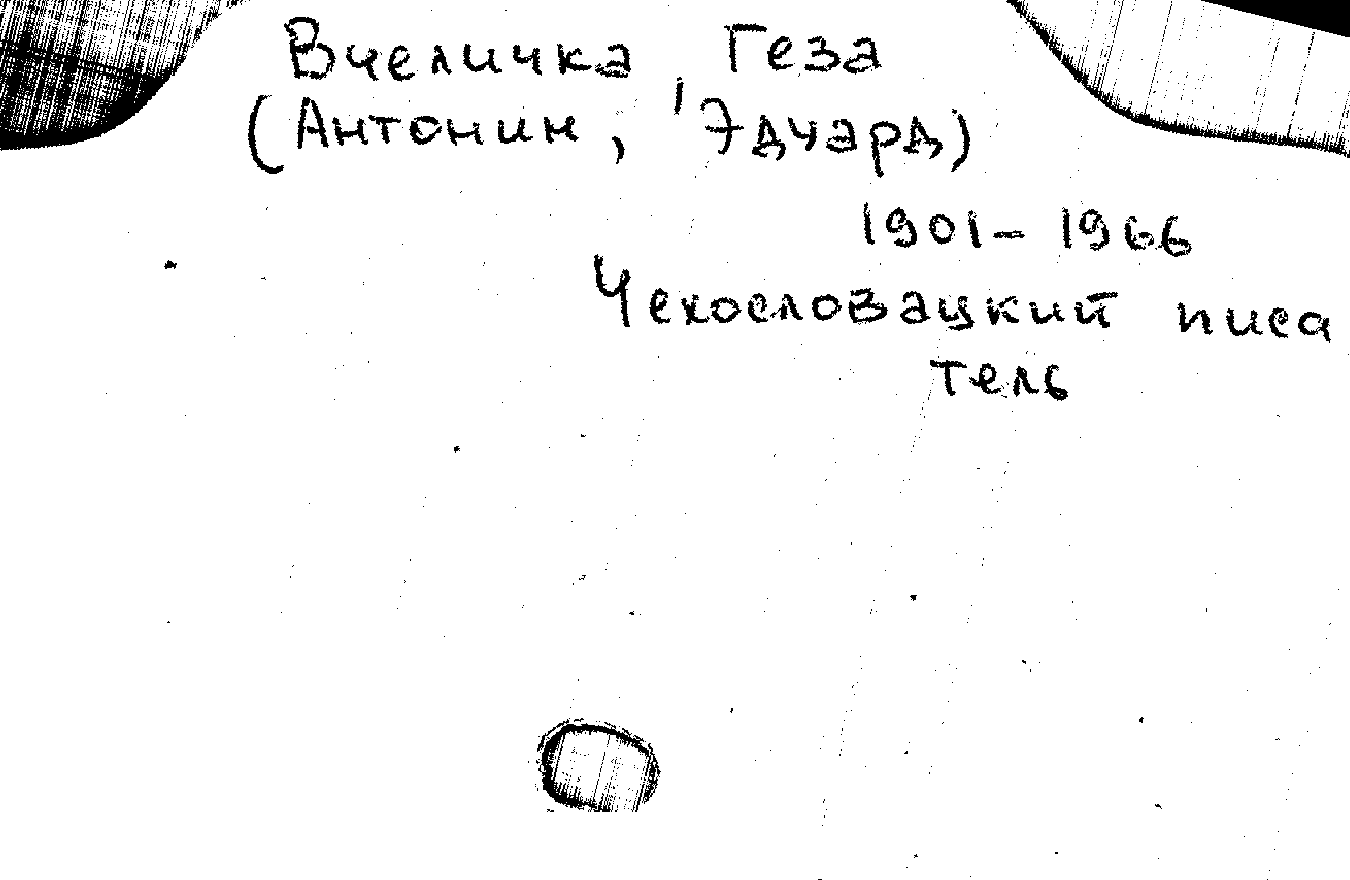 Вчеличка Геза
(Антонин, Эдуард)
1901-1966
Чехословацкий писа
тель